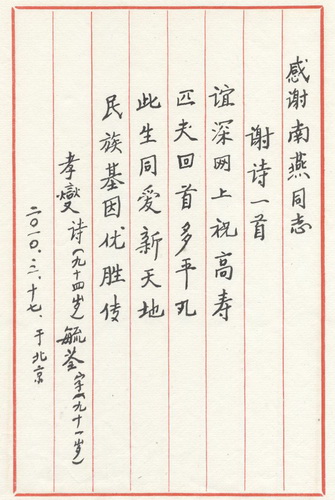 感谢南燕同志
谢诗一首
谊深网上祝高寿
匹夫回首多平凡
此生同爱新天地
民族基因优胜传
孝燮诗(九十四岁)毓荃字(九十一岁)
二〇一〇、三、十七、于北京